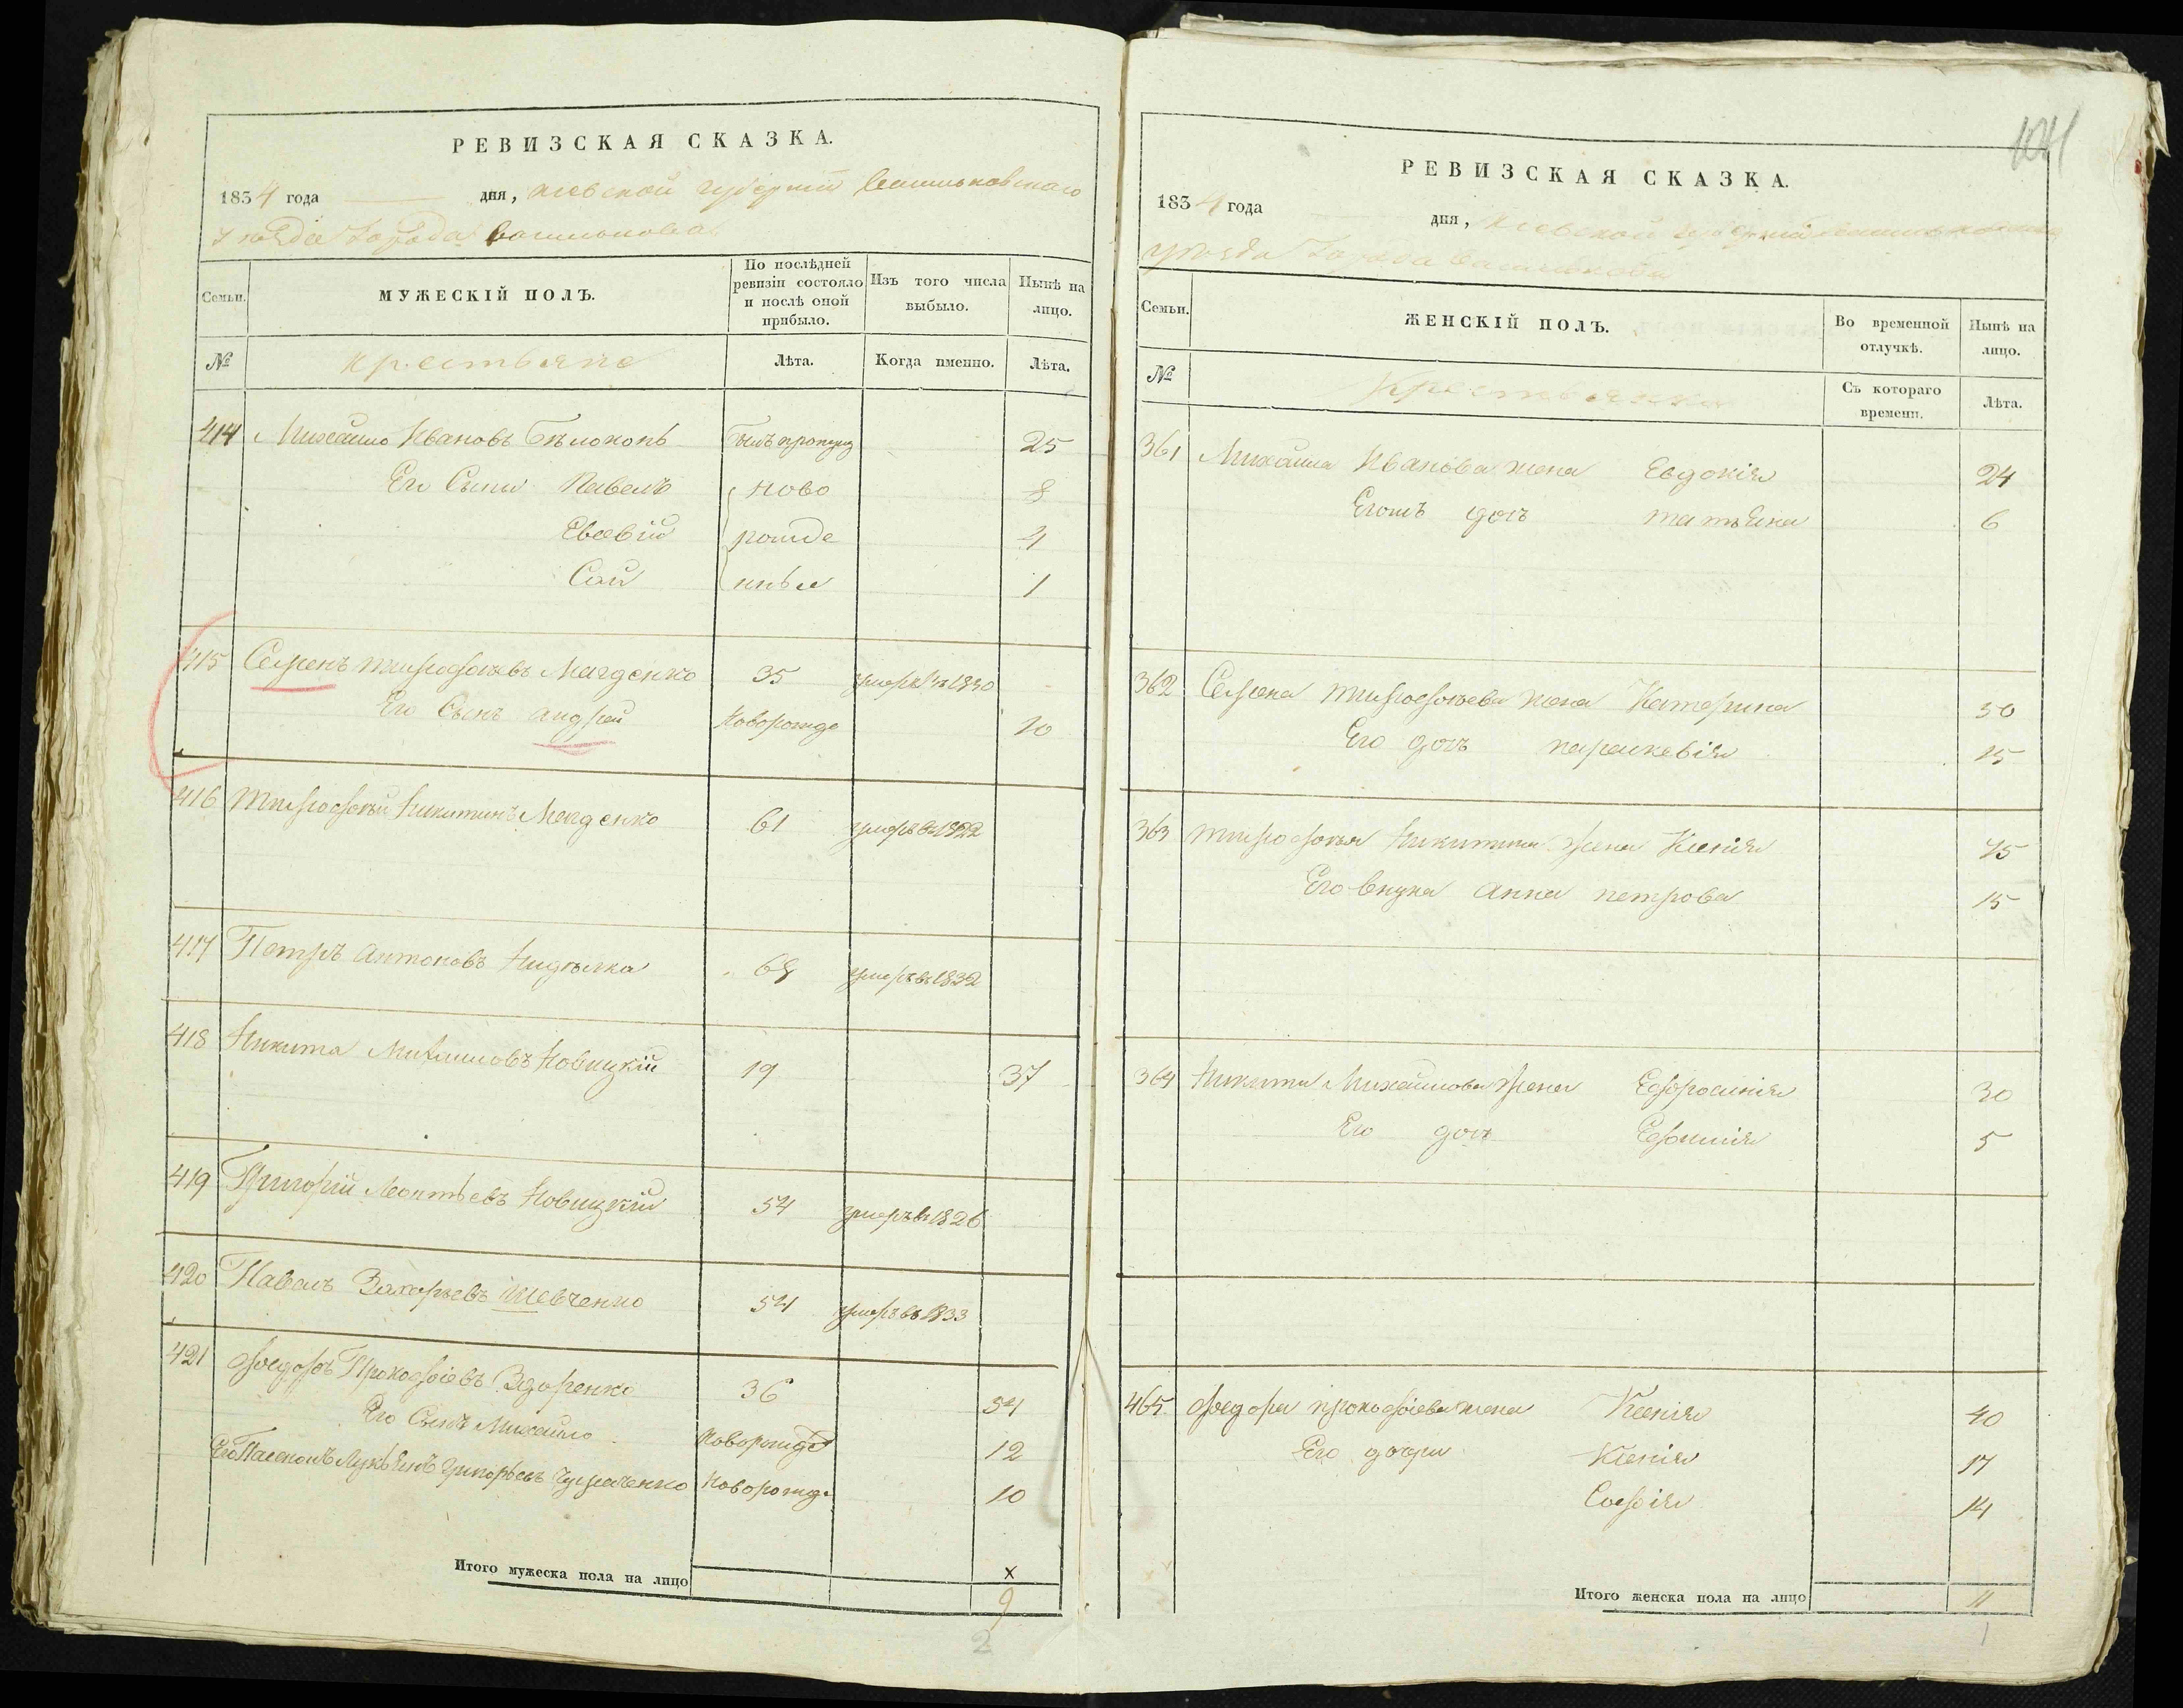 РЕВИЗСКАЯ СКАЗКА.
1834 года дня, Киевской губернии Васильковскаго
уезда города Василькова
Семьи. МУЖЕСКІЙ ПОЛЪ. По послѣдней ревизіи состояло и послѣ оной прибыло. Изъ того числа выбыло. Нынѣ на лицо.
№ крестьяне Лѣта. Когда именно. Лѣта.
414 Михайло Ивановъ Бѣлоконь былъ пропущ 25
Его Сыны Павелъ ново 8
Евсевій рожде 4
Сай нные 1
415 Семенъ Тимофѣевъ Магденко 35 умеръ въ 1830
Его Сынъ андрей Новорожде 10
416 Тимофѣй Никитинъ Магденко 61 умеръ въ 1822
417 Петръ антоновъ 68 умеръ въ 1832
418 Никита Михайловъ Новицкій 19 37
419 Григорій Леонтьевъ Новицкій 54 умеръ въ 1826
420 Павелъ Захарьевъ Шевченко 54 умеръ въ 1833
421 Федоръ Прокофіевъ Здоренко 36 54
Его Сынъ Михайло Новорожде 12
Его Пасенокъ Лукьянъ Григорьевъ Новорожде 10
Итого мужеска пола на лицо 9
2
104
РЕВИЗСКАЯ СКАЗКА.
1834 года дня, Киевской губернии Васильковскаго
уезда Города Василькова
Семьи. ЖЕНСКІЙ ПОЛЪ. Во временной отлучкѣ. Нынѣ на лицо.
№ крестьянки Съ котораго времени. Лѣта.
361 Михайла Иванова жена Евдокія 24
Егожъ дочь татьяна 6
362 Семена Тимофѣева жена Катерина 50
Его дочь параскевія 15
363 Тимофѣя Никитина жена Ксенія 45
Его внука анна петрова 15
364 Никиты Михайлова жена Ефросинія 30
Его дочь Ефимія 5
465 Федора прокофіева жена Ксенія 40
Его дочери Ксенія 17
Софія 14
Итого женска пола на лицо 11
1